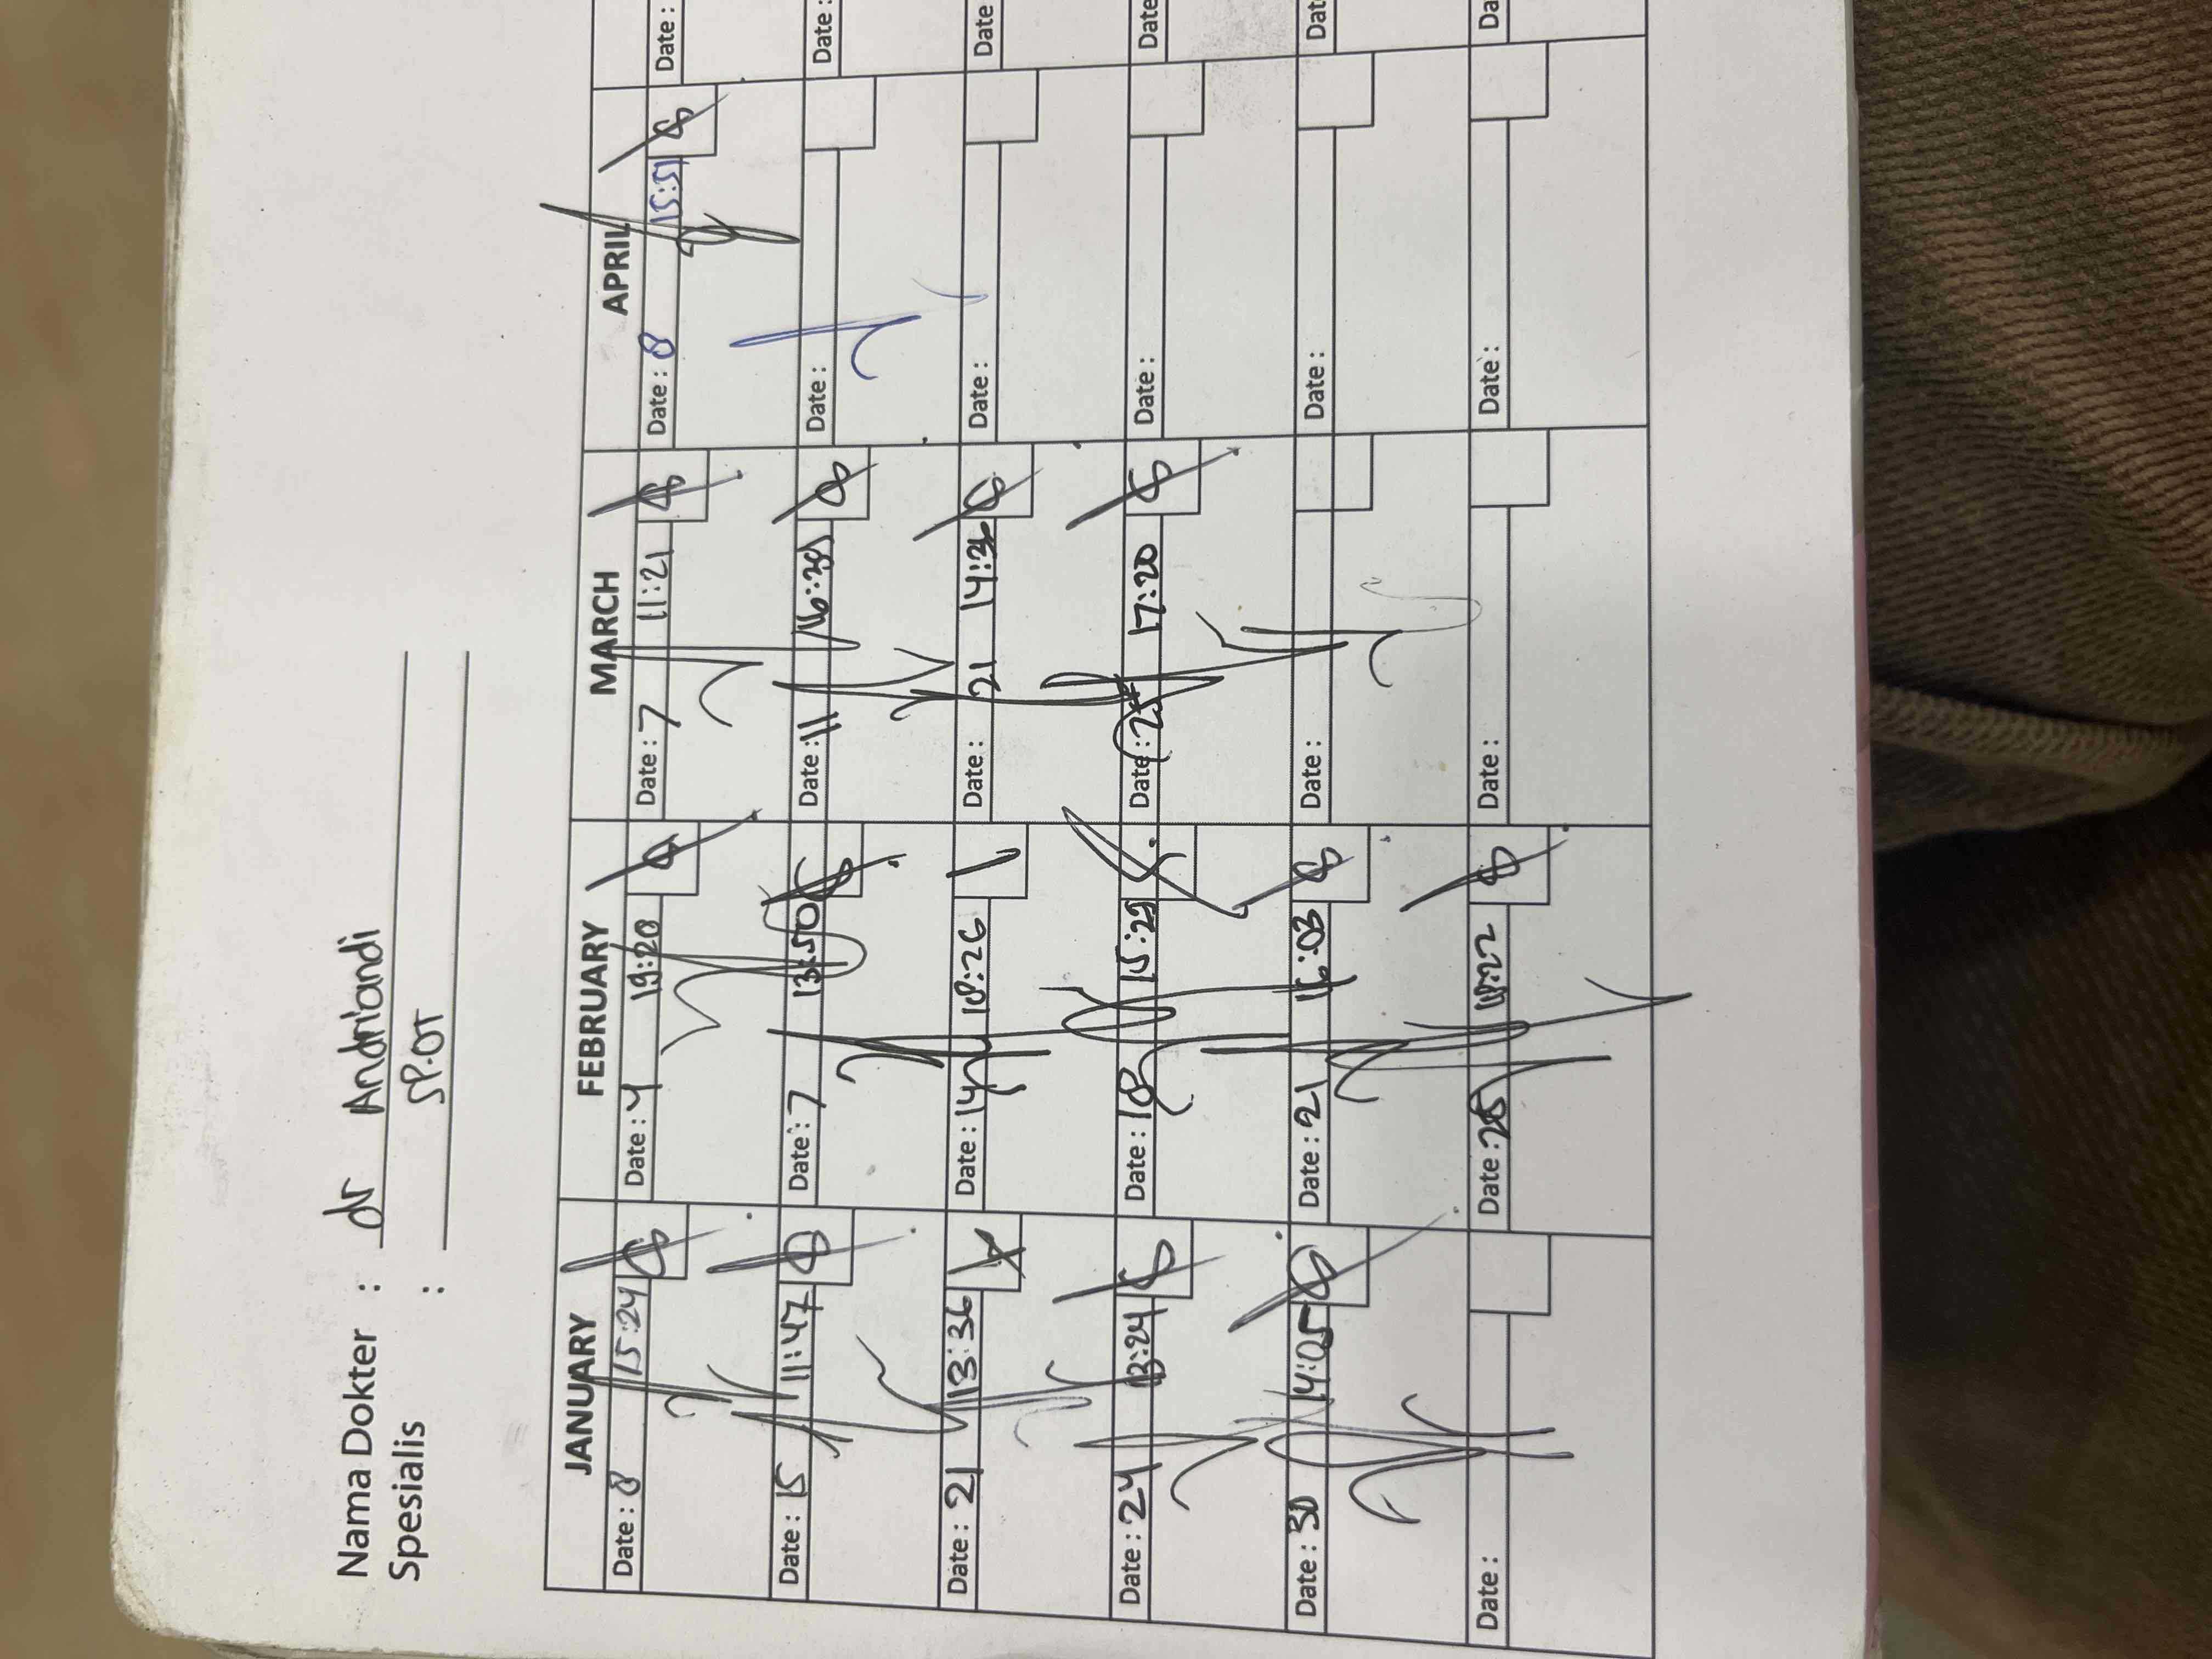 Nama Dokter : dr Andriandi
Spesialis : SP.OT
JANUARY FEBRUARY MARCH APRIL
Date : 8 15:24 Date : 4 19:20 Date : 7 11:21 Date : 8 15:51 Date :
Date : 15 11:47 Date : 7 13:50 Date : 11 Date : Date :
Date : 21 13:36 Date : 14 18:26 Date : 21 14:36 Date : Date
Date : 24 13:24 Date : 18 15:29 Date : 25 17:20 Date : Date
Date : 30 14:05 Date : 21 16:03 Date : Date : Dat
Date : Date : 25 Date : Date : Da